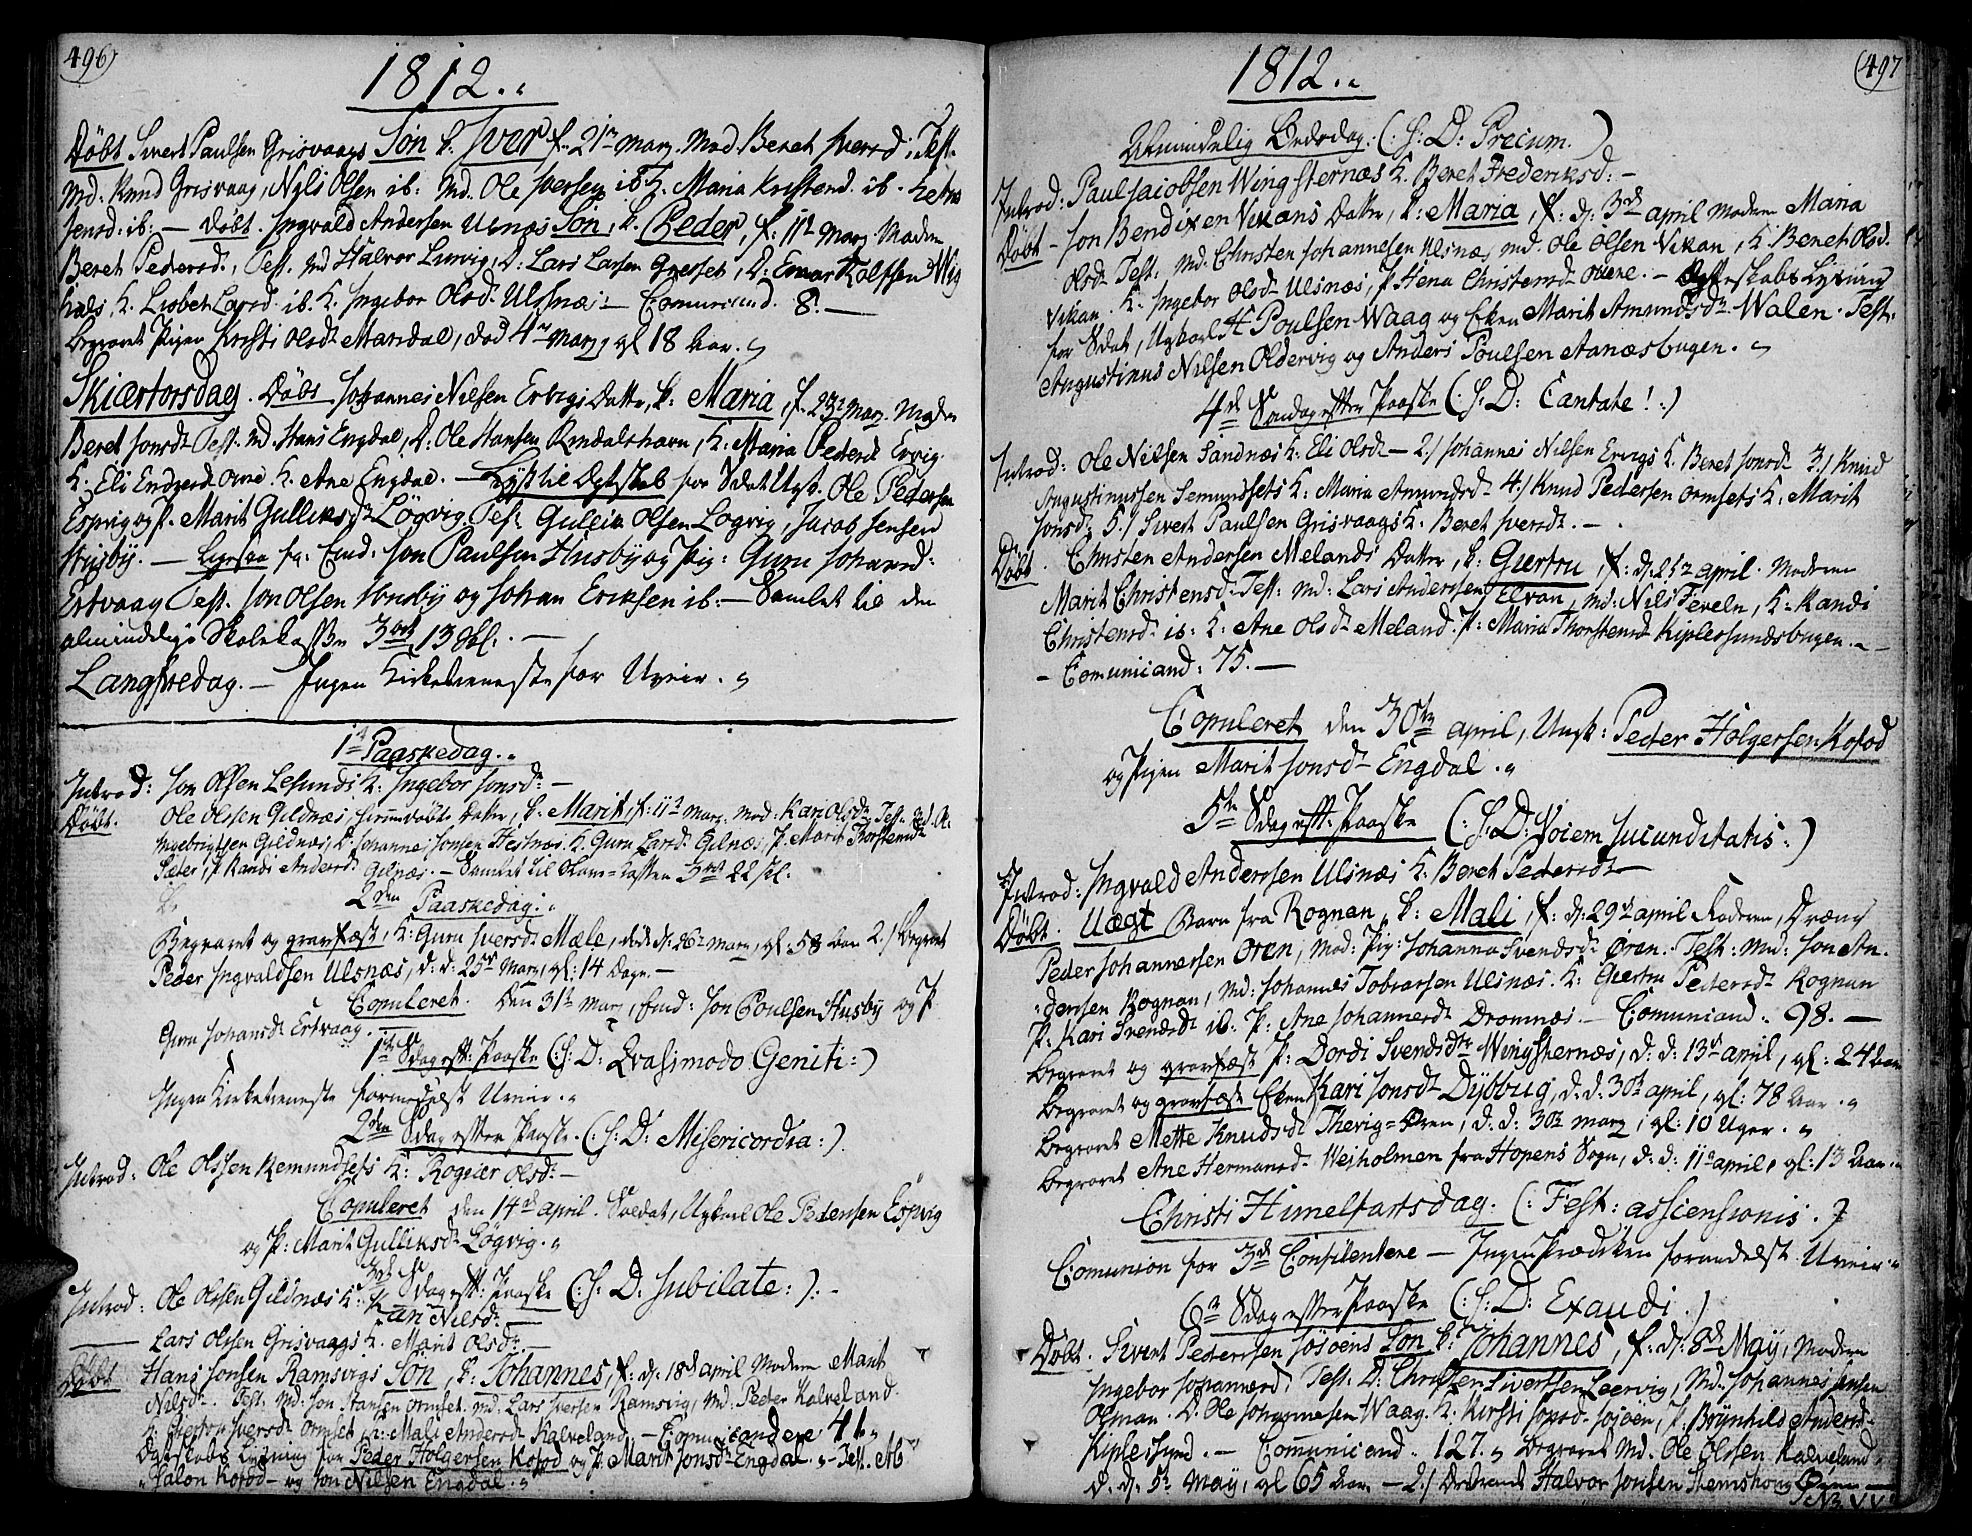 496)
1812..
Döbt Sivert Paulsen Grisvaags Sön k. Iver f. 21de Marz. Mod. Beret Iversd: Test.
Md. Knud Grisvaag, Nils Olsen ib: Md. Ole Iversen ib K. Maria Kristensd. ib.
ib: — Döbt. Ingvald Andersen Ulsnæs Sön, k. Peder, f: 11te Marz Moderen
Beret Pedersd., Test. Md Halvor Lervig, D: Lars Larsen Grisset, D: Einar Rolfsen Wig
K. Lisbet Larsd. ib. K. Ingebor Olsd. Ulsnæs — Comunicand. 8. —
Begravet Pigen Kirsti Olsd. Mandal, död 4de Marz, gl 18 Aar.
Skiærtorsdag. Döbt Johannes Nielsen Ervigs Datter, k. Maria, f. 23de Marz. Moder
Beret Jonsd. Test. Md. Hans Engdal, D: Ole Hansen Rendalshavn, K: Maria Pedersd. Ervig
K. Eli Endresd. K. Ane Engdal. — Lyst til Ægteskab for Soldat Ungk. Ole Pedersen
Espvig og P. Marit Gulliksd. Lögvig. Test. Gulleik Olsen Lögvig, Jacob Jensen
Husby. — Lyst for Enk: Jon Paulsen Husby og Pig: Guru Johansd:
Ertvaag Test. Jon Olsen Husby og Johan Eriksen ib: — Samlet til den
almindelige Skolekasse 3 Ort 13 skl. —
Langfredag. — Ingen Kirketieneste for Uveir.
1te Paaskedag.
Introd: Jon Olsen Lesunds K. Ingebor Jonsd. —
Döbt. Ole Olssen Gildnæs, hiemmedöbt Datter, k. Marit, f. 11te Marz. Mod: Kari Olsd. Test. Md. Ole
Ingebrigtsen Gildnæs, D. Johannes Jonsen Hestnæs K. Guru Larsd. Gilnæs, P. Marit Thorstensd.
Sæter, P. Randi Andersd. Gilnæs. — Samlet til
2den Paaskedag.
Begravet og gravfæst, K: Guru Iversd. Mæle, död d: 26de Marz, gl: 58 Aar 2./ Begravet
Peder Ingvaldsen Ulsnæs, d: d: 25de Marz, gl: 14 Dage. —
Copuleret. Den 31te Marz, Enk: Jon Poulsen Husby og P.
Guru Johansd. Ertvaag.
1te Sdag eft: Paaske (: S: D: Qvasimodo Geniti:)
Ingen Kirketieneste formedelst Uveir.
2den Sdag efter Paaske. (: S: D: Misericordia:).
Introd: Ole Olssen Remundsets K: Rogner Olsd. —
Copuleret den 14de April. Soldat, Ugkarl Ole Pedersen Espvig
og P: Marit Gulliksd. Lögvig.
3de Sdag eft: Paaske (: S. D. Jubilate:).
Introd: Ole Olssen Gildnæs K: Kari Nilsd.
Lars Olssen Grisvaags K. Marit Olsd.
Döbt Hans Jonsen Ramsvigs Sön, k: Johannes, f: d: 18de April Moderen Marit
Nilsd. Test. Md. Jon Hansen Ormset. Md. Lars Iversen Ramsvig, Md. Peder Kalveland.
Iversd. Ormset K: Mali Andersd. Kalveland. — Comunicandere 41
Ægteskabs Lysning for Peder Holgersen Kofod og P. Marit Jonsd. Engdal. — Test. Ab
salon Kofod — og Jon Nielsen Engdal.
(497
1812..
Almindelig Bededag. (: S: D: Precum.)
Introd: Paul Jacobsen Wingsternæs K. Beret Frederiksd: —
Döbt — Jon Bendixen Vikans Datter, k: Maria, f: d: 3de April Moderen Maria
Olsd. Test: Md. Christen Johannesen Ulsnæs, Md. Ole Olsen Vikan, K. Beret Olsd.
Vikan. K. Ingebor Olsd. Ulsnæs, P Hena Christensd. — Ægteskabs Lysning
for Sdat, Ugkarl H Poulsen Waag og Enken Marit Amundsd. Walen. Test:
Augustinus Nilsen Oldervig og Anders Poulsen Aanæsbugen.
4de Söndag efter Paaske (: S. D: Cantate!:)
Introd: Ole Nilsen Sandnæs K: Eli Olsd. — 2./ Johannes Nilsen Ervigs K. Beret Jonsd. 3./ Knud
Augustinussen Semundsets K: Maria Amundsd. 4./ Knud Pedersen Ormsets K. Marit
Jonsd. 5./ Sivert Paulsen Grisvaags K: Beret Iversd. —
Döbt. Christen Andersen Melands Datter, k: Giertru, f: d: 25de April. Moderen
Marit Christensd. Test: Md: Lars Anderssen Elvan, Md: Nils Feveln, K: Randi
Christensd. ib: K: Ane Olsd. Meland. P: Maria Thorstensd. Kiplesundsbugen. —
— Comunicand: 75. —
Copuleret den 30te April, Ungk: Peder Holgersen Kofod
og Pigen Marit Jonsd. Engdal.
5te Sdag eft: Paaske (: S: D: Voiem Jucunditatis:)
Introd: Ingvald Anderssen Ulsnæs K. Beret Pedersd.
Döbt. Uægt Barn fra Rognan, k: Mali, f: d: 29de April Faderen, Dræng
Peder Johannessen Ören, Mod: Pig: Johanna Svendsd. Ören. Test: Md: Jon An
dersen Rognan, Md: Johannes Tobiassen Ulsnæs. K: Giertru Pedersd. Rognan
P. Kari Svendsd. ib: P: Ane Johannesd. Dromnæs — Comunicand. 98. —
Begravet og gravfæst P: Dordi Svendsdtr Wingsternæs, d: d: 13de April, gl: 24 Aar
Begravet og gravfæst Enken Kari Jonsd. Dybbug, d. d: 30te April, gl: 78 Aar.
Begravet Mette Knudsd. Thevig=Ören, d: d: 30te Marz, gl: 10 Uger.
Begravet Ane Hermansd. Wejholmen fra Hopens Sogn, d: d: 11te April, gl: 13 Aar.
Christi Himelfartsdag. (: Fest: assiensionis.)
Comunion for 3de Confitentere — Ingen Prædiken formedelst Uveir
6te Sdag efter Paaske (: S: D: Exaudi.)
Döbt. Sivert Pedersen Söjöens Sön k: Johannes, f: d: 8de May, Moderen
Ingebor Johannesd. Test: D: Christen Sivertsen Leervig, Md: Johannes Jensen
Osman. D. Ole Johannesen Waag. K. Kirsti Jonsd. Söjöen, P. Brynhild Andersd.
Kiplesund. — Comunicand. 127. Begravet Md. Ole Olssen Kalveland
d. d: 5te May, gl 65 Aar. — 2./ Halvor Jonsen